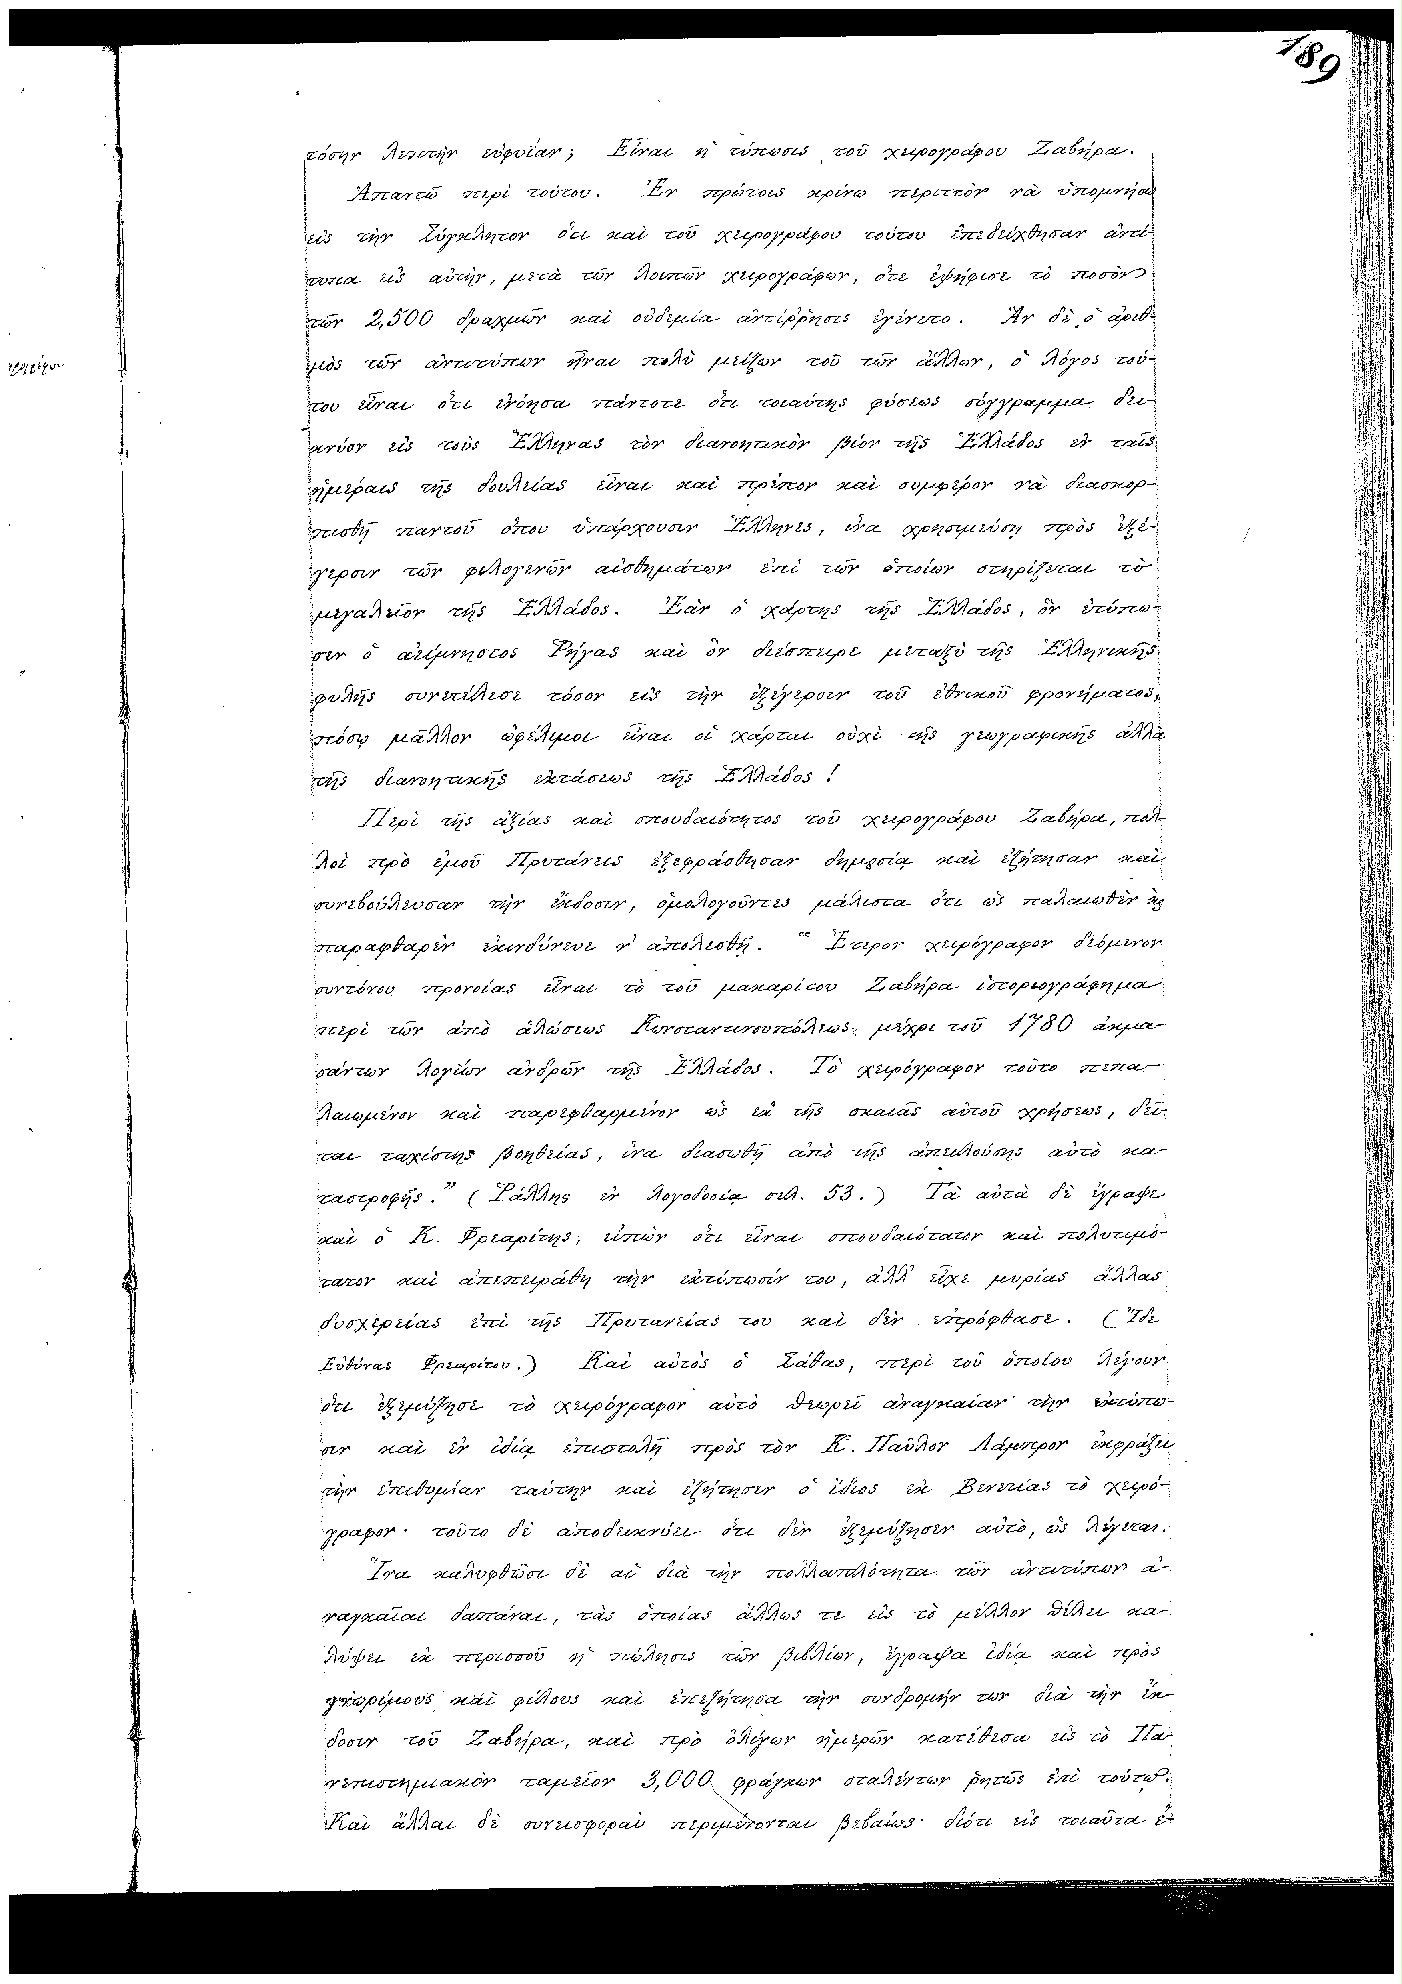 189
τόσην λεπτὴν εὐφυΐαν; Εἶναι ἡ τύπωσις τοῦ χειρογράφου Ζαβήρα.
Ἀπαντῶ περὶ τούτου. Ἐν πρώτοις κρίνω περιττὸν νὰ ὑπομνήσω
εἰς τὴν Σύγκλητον ὅτι καὶ τοῦ χειρογράφου τούτου ἐπεδείχθησαν ἀντί-
τυπα εἰς αὐτὴν, μετὰ τῶν λοιπῶν χειρογράφων, ὅτε ἐψήφισε τὸ ποσὸν
τῶν 2,500 δραχμῶν καὶ οὐδεμία ἀντίῤῥησις ἐγένετο. Ἂν δὲ ὁ ἀριθ-
μὸς τῶν ἀντιτύπων ἦναι πολὺ μείζων τοῦ τῶν ἄλλων, ὁ λόγος τού-
του εἶναι ὅτι ἐνόησα πάντοτε ὅτι τοιαύτης φύσεως σύγγραμμα δει-
κνύον εἰς τοὺς Ἕλληνας τὸν διανοητικὸν βίον τῆς Ἑλλάδος ἐν ταῖς
ἡμέραις τῆς δουλείας εἶναι καὶ πρέπον καὶ συμφέρον νὰ διασκορ-
πισθῇ παντοῦ ὅπου ὑπάρχουσιν Ἕλληνες, ἵνα χρησιμεύσῃ πρὸς ἐξέ-
γερσιν τῶν φιλογενῶν αἰσθημάτων ἐπὶ τῶν ὁποίων στηρίζεται τὸ
μεγαλεῖον τῆς Ἑλλάδος. Ἐὰν ὁ χάρτης τῆς Ἑλλάδος, ὃν ἐτύπω-
σεν ὁ ἀείμνηστος Ῥήγας καὶ ὃν διέσπειρε μεταξὺ τῆς Ἑλληνικῆς
φυλῆς συνετέλεσε τόσον εἰς τὴν ἐξέγερσιν τοῦ ἐθνικοῦ φρονήματος,
πόσῳ μᾶλλον ὠφέλιμοι εἶναι οἱ χάρται οὐχὶ τῆς γεωγραφικῆς ἀλλὰ
τῆς διανοητικῆς ἐκτάσεως τῆς Ἑλλάδος!
Περὶ τῆς ἀξίας καὶ σπουδαιότητος τοῦ χειρογράφου Ζαβήρα, πολ-
λοὶ πρὸ ἐμοῦ Πρυτάνεις ἐξεφράσθησαν δημοσίᾳ καὶ ἐζήτησαν καὶ
συνεβούλευσαν τὴν ἔκδοσιν, ὁμολογοῦντες μάλιστα ὅτι ὡς παλαιωθὲν κ̀
παραφθαρὲν ἐκινδύνευε ν' ἀπολεσθῇ. “ Ἕτερον χειρόγραφον δεόμενον
συντόνου προνοίας εἶναι τὸ τοῦ μακαρίτου Ζαβήρα ἱστοριογράφημα
περὶ τῶν ἀπὸ ἁλώσεως Κωνσταντινουπόλεως μέχρι τοῦ 1780 ἀκμα-
σάντων λογίων ἀνδρῶν τῆς Ἑλλάδος. Τὸ χειρόγραφον τοῦτο πεπα-
λαιωμένον καὶ παρεφθαρμένον ὡς ἐκ τῆς σκαιᾶς αὐτοῦ χρήσεως, δεῖ-
ται ταχίστης βοηθείας, ἵνα διασωθῇ ἀπὸ τῆς ἀπειλούσης αὐτὸ κα-
ταστροφῆς.” (Ῥάλλης ἐν λογοδοσίᾳ σελ. 53.) Τὰ αὐτὰ δὲ ἔγραψε
καὶ ὁ Κ. Φρεαρίτης, εἰπὼν ὅτι εἶναι σπουδαιότατον καὶ πολυτιμό-
τατον καὶ ἀπεπειράθη τὴν ἐκτύπωσίν του, ἀλλ' εἶχε μυρίας ἄλλας
δυσχερείας ἐπὶ τῆς Πρυτανείας του καὶ δὲν ἐπρόφθασε. (Ἴδε
Εὐθύνας Φρεαρίτου.) Καὶ αὐτὸς ὁ Σάθας, περὶ τοῦ ὁποίου λέγουν
ὅτι ἐξεμύζησε τὸ χειρόγραφον αὐτὸ θεωρεῖ ἀναγκαίαν τὴν ἐκτύπω-
σιν καὶ ἐν ἰδίᾳ ἐπιστολῇ πρὸς τὸν Κ. Παῦλον Λάμπρον ἐκφράζει
τὴν ἐπιθυμίαν ταύτην καὶ ἐζήτησεν ὁ ἴδιος ἐκ Βενετίας τὸ χειρό-
γραφον· τοῦτο δὲ ἀποδεικνύει ὅτι δὲν ἐξεμύζησεν αὐτὸ, ὡς λέγεται.
Ἵνα καλυφθῶσι δὲ αἱ διὰ τὴν πολλαπλότητα τῶν ἀντιτύπων ἀ-
ναγκαῖαι δαπάναι, τὰς ὁποίας ἄλλως τε εἰς τὸ μέλλον θέλει κα-
λύψει ἐκ περισσοῦ ἡ πώλησις τῶν βιβλίων, ἔγραψα ἰδίᾳ καὶ πρὸς
γνωρίμους καὶ φίλους καὶ ἐπεζήτησα τὴν συνδρομήν των διὰ τὴν ἔκ-
δοσιν τοῦ Ζαβήρα, καὶ πρὸ ὀλίγων ἡμερῶν κατέθεσα εἰς τὸ Πα-
νεπιστημιακὸν ταμεῖον 3,000 φράγκων σταλέντων ῥητῶς ἐπὶ τούτῳ.
Καὶ ἄλλαι δὲ συνεισφοραὶ περιμένονται βεβαίως· διότι εἰς τοιαῦτα ἔ-